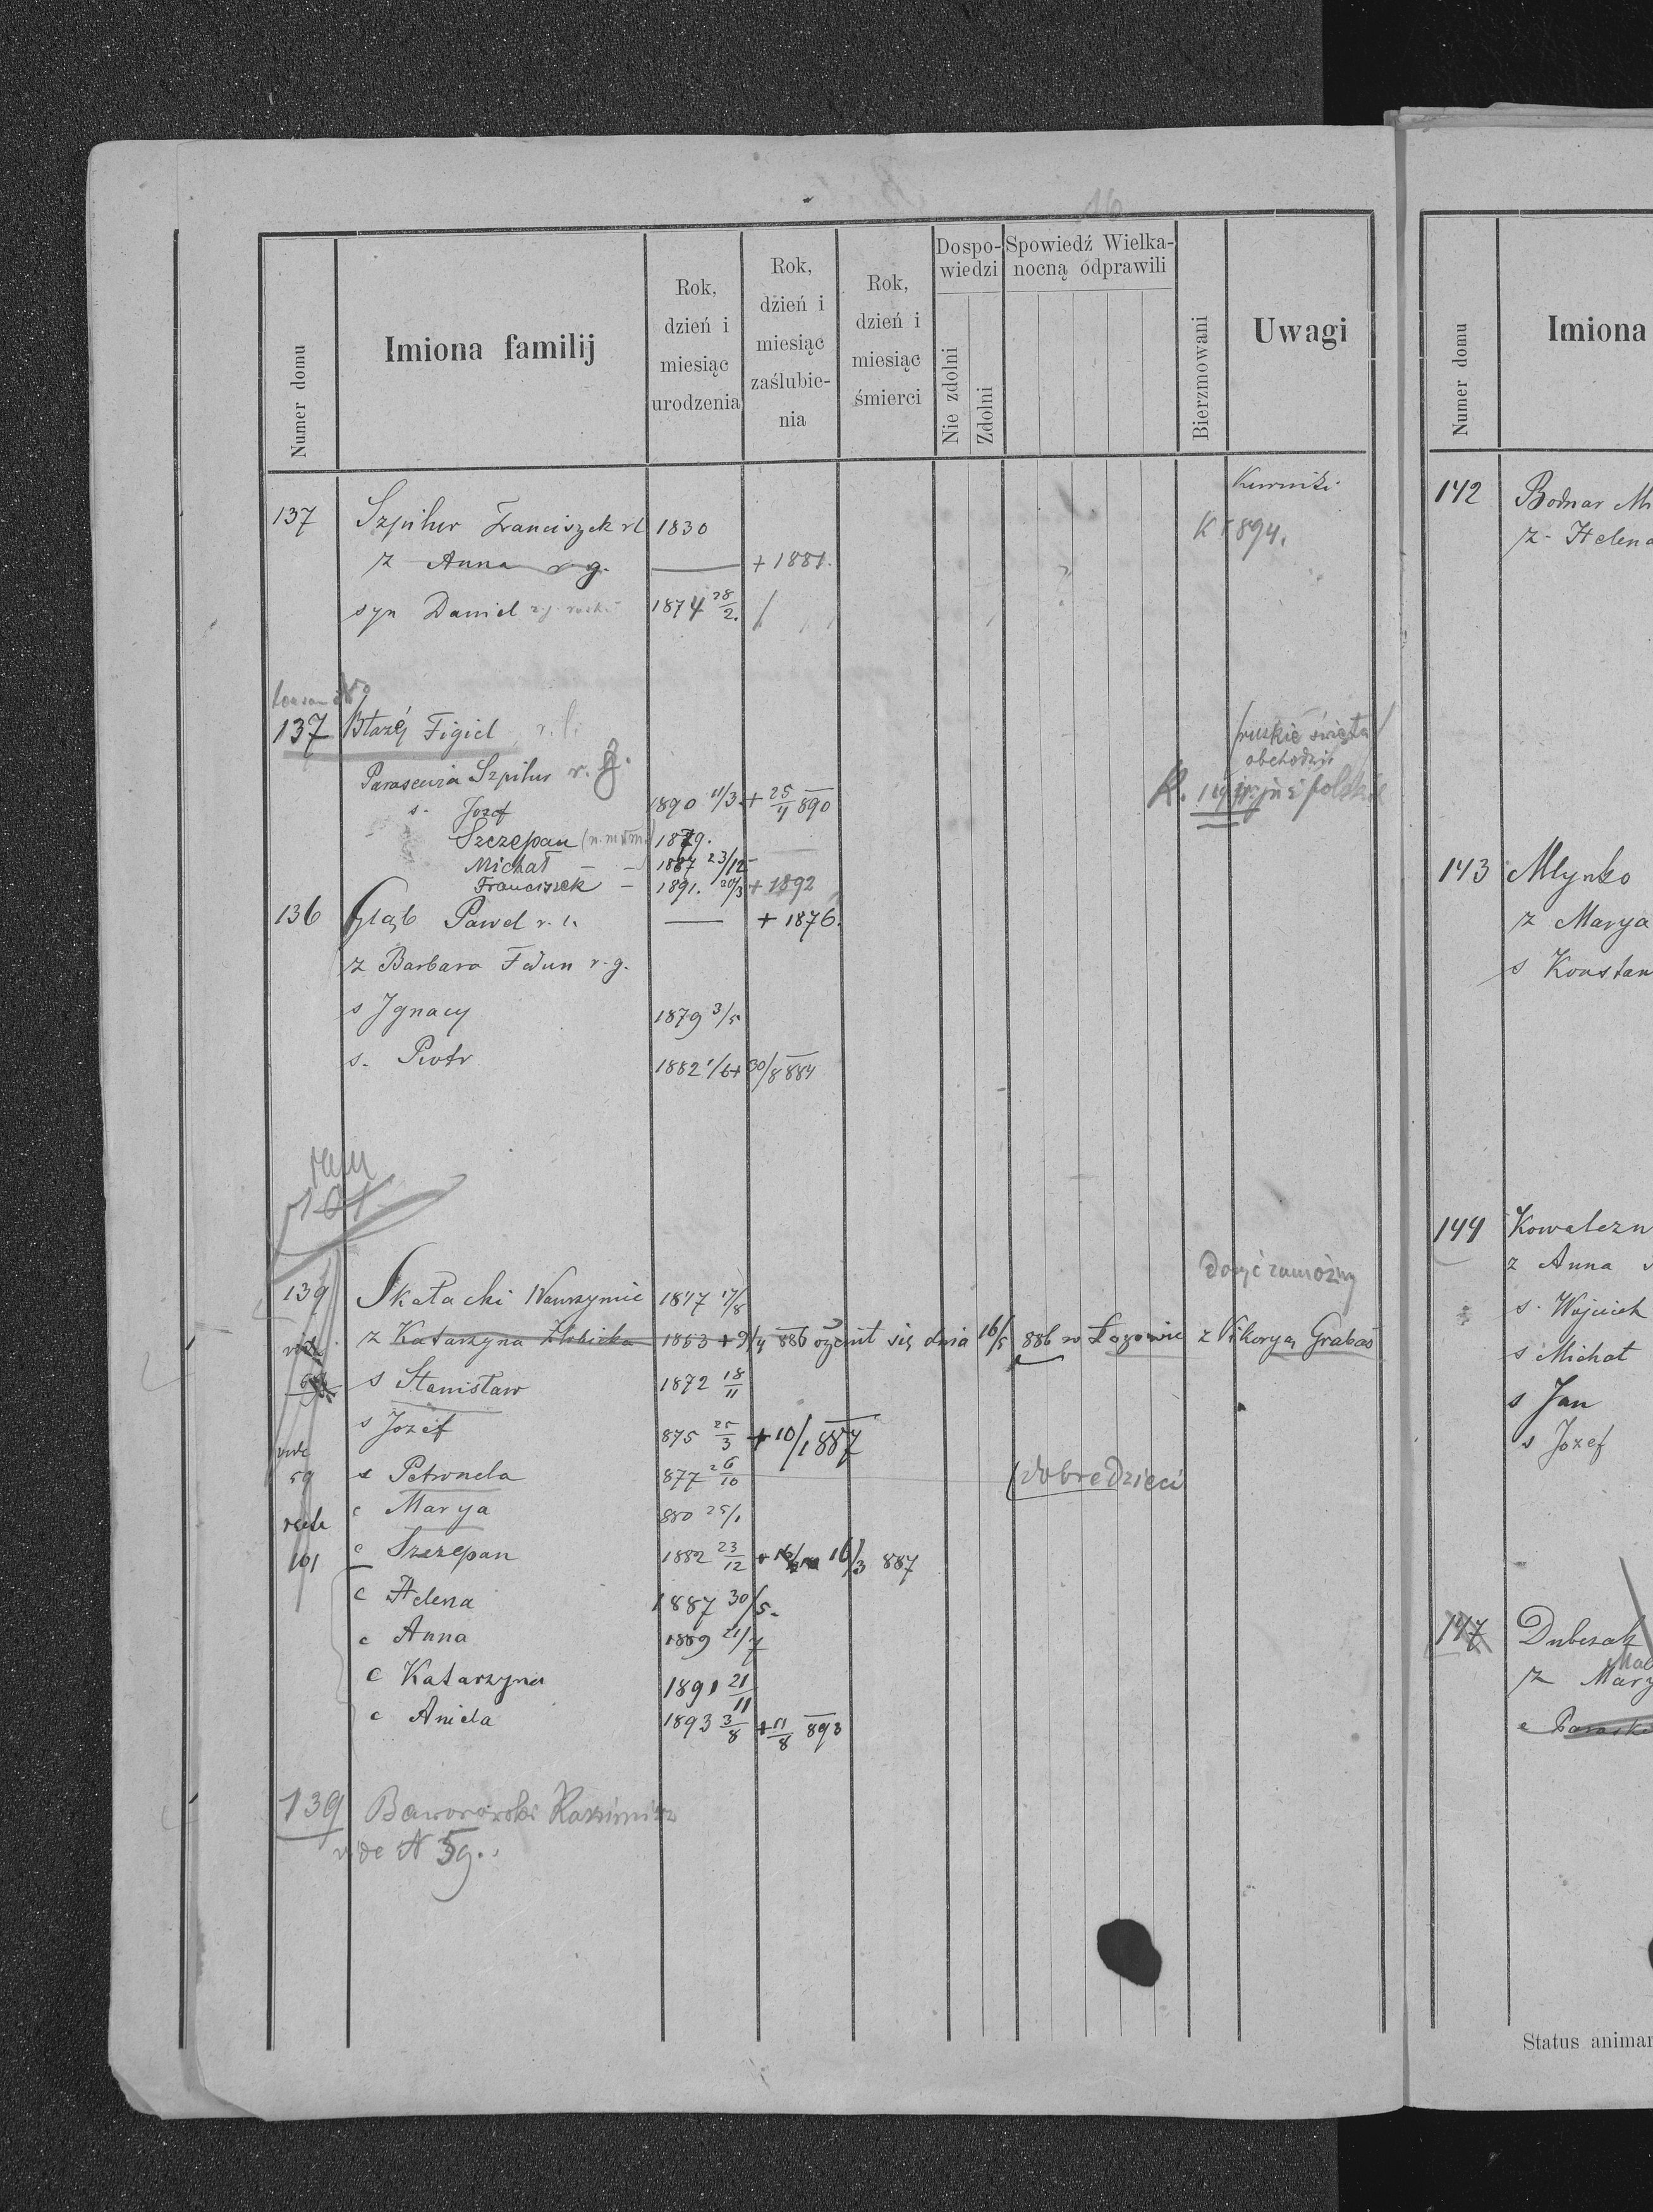 16
Numer domu
Imiona familij
Rok, dzień i miesiąc urodzenia
Rok, dzień i miesiąc zaślubie-nia
Rok, dzień i miesiąc śmierci
Dospo-wiedzi
Nie zdolni
Zdolni
Spowiedź Wielka-nocną odprawili
Bierzmowani
Uwagi
137 Szpilur Franciszek rl 1830
K 1894.
z Anna r g. — + 1881.
syn Daniel 1874 28/2.
137 Błazéj Figiel r. l.
ruskie święta
obchodzi
Parascewia Szpilur r. g.
już polskie
s. Jozef 1890 11/3. + 25/4 890
Szczepan 1879.
Michał — 1887 23/12
Franciszek — 1891. 20/3 + 1892
136 Głąb Paweł r. l. — + 1876.
z Barbara Fedun r. g.
s Ignacy 1879 3/5
s. Piotr 1882 1/6 + 30/8 884
101
dosyć zamożny
139 Skałacki Wawrzyniec 1847 17/8
vide z Katarzyna 1853 + 9/4 886 ożenił się dnia 16/5 886 w Łozowie z Wikoryą Grabas
s Stanisław 1872 18/11
s Jozef 875 25/3 + 10/1 887
vide
59 s Petronela 877 26/10 (dobre dzieci
c Marya 880 25/1
vide
101 c Szczepan 1882 23/12 + 16/3 887
c Helena 1887 30/5.
c Anna 1889 21/7
c Katarzyna 1891 21/11
c Aniela 1893 3/8 + 11/8 893
139 Baworowski Kazimierz
vide N 59.
Numer domu
Imiona
142 Bodnar Mi
z - Helena
143 Młynko
z Marya
s Konstan
144 Kowalczu
z Anna
s. Wojciech
s Michał
s Jan
s Jozef
147 Dubczak
z Mary
c Parask
Status animar